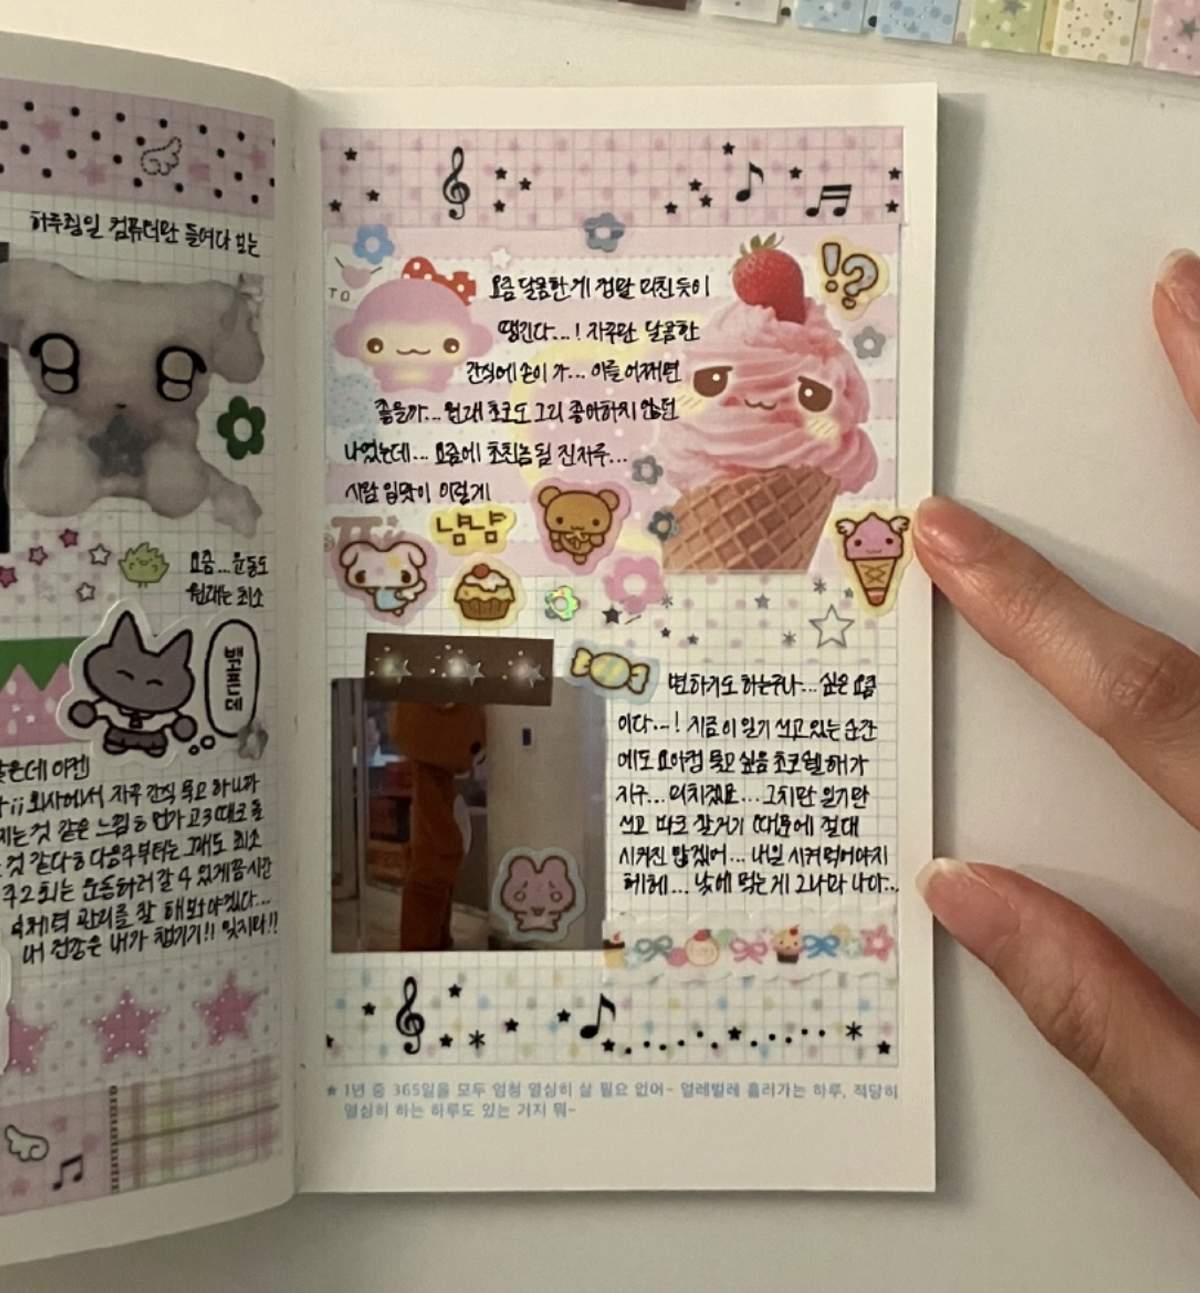 하루종일 컴퓨터만 들여다 보는
요즘...운동도
원래는 최소
뱃
포
런데
같은데 이젠
회사에서 자꾸 간식 먹고 하니까
지는것 같은 느낌ㅎ 먼가 고3때로 돌
것 같다ㅎ 다음주부터는 그래도 최소
주2회는 운동하러갈 수 있게끔 시간
체력 관리를 잘 해봐야겠다...
내 건강은 내가 챙기기!! 잊지마!!
TO
요즘 달콤한게 정말 미친듯이
땡긴다...! 자꾸만 달콤한
간식에 손이 가... 이를 어쩌면
좋을까... 원래 초코도 그리 좋아하지 않던
나였는데... 요즘에 초친놈 될 진자루...
사람 입맛이 이렇게
!?
냠냠
변하기도 하는구나... 싶은 요즘
이다...! 지금 이 일기 쓰고있는 순간
에도 요아정 먹고 싶음 초코쉘 해가
지구... 미치겠요... 그치만 일기만
쓰고 바로 잘거기 때문에 절대
시켜진 맙겠어... 내일 시켜먹어야지
헤헤... 낮에 먹는게 그나마 나아...
★ 1년 중 365일을 모두 엄청 열심히 살 필요 없어~ 얼레벌레 흘러가는 하루, 적당히
열심히 하는 하루도 있는 거지 뭐~